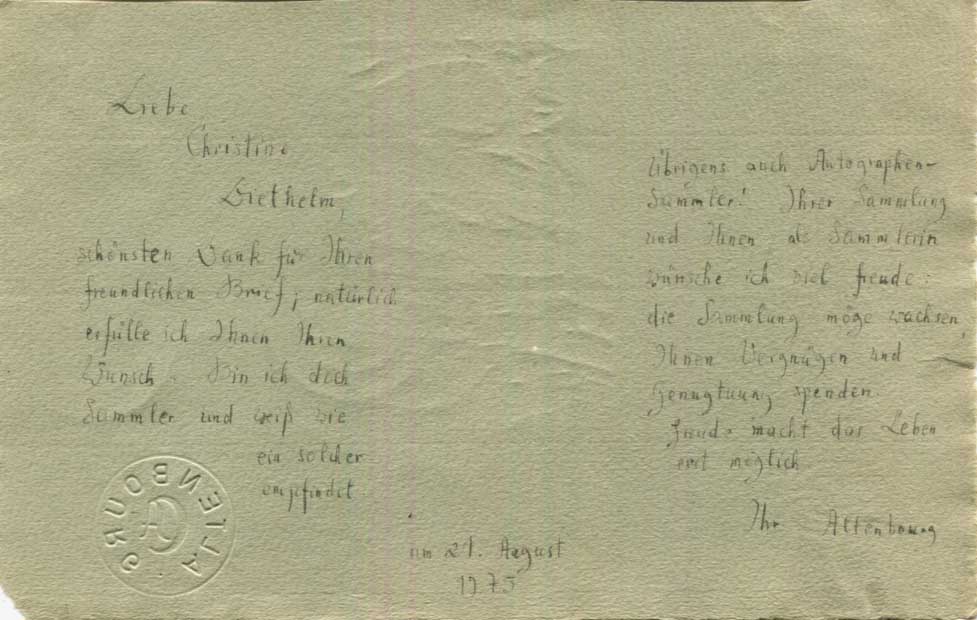 Liebe
Christine
Diethelm,
schönsten Dank für Ihren
freundlichen Brief; natürlich
erfülle ich Ihnen Ihren
Wunsch. Bin ich doch
Sammler und weiß wie
ein solcher
empfindet
am 21. August
1975
Übrigens auch Autographen-
Sammler! Ihrer Sammlung
und Ihnen als Sammlerin
wünsche ich viel Freude:
die Sammlung möge wachsen,
Ihnen Vergnügen und
Genugtuung spenden.
Freude macht das Leben
erst möglich
Ihr Altenbourg
ALTENBOURG